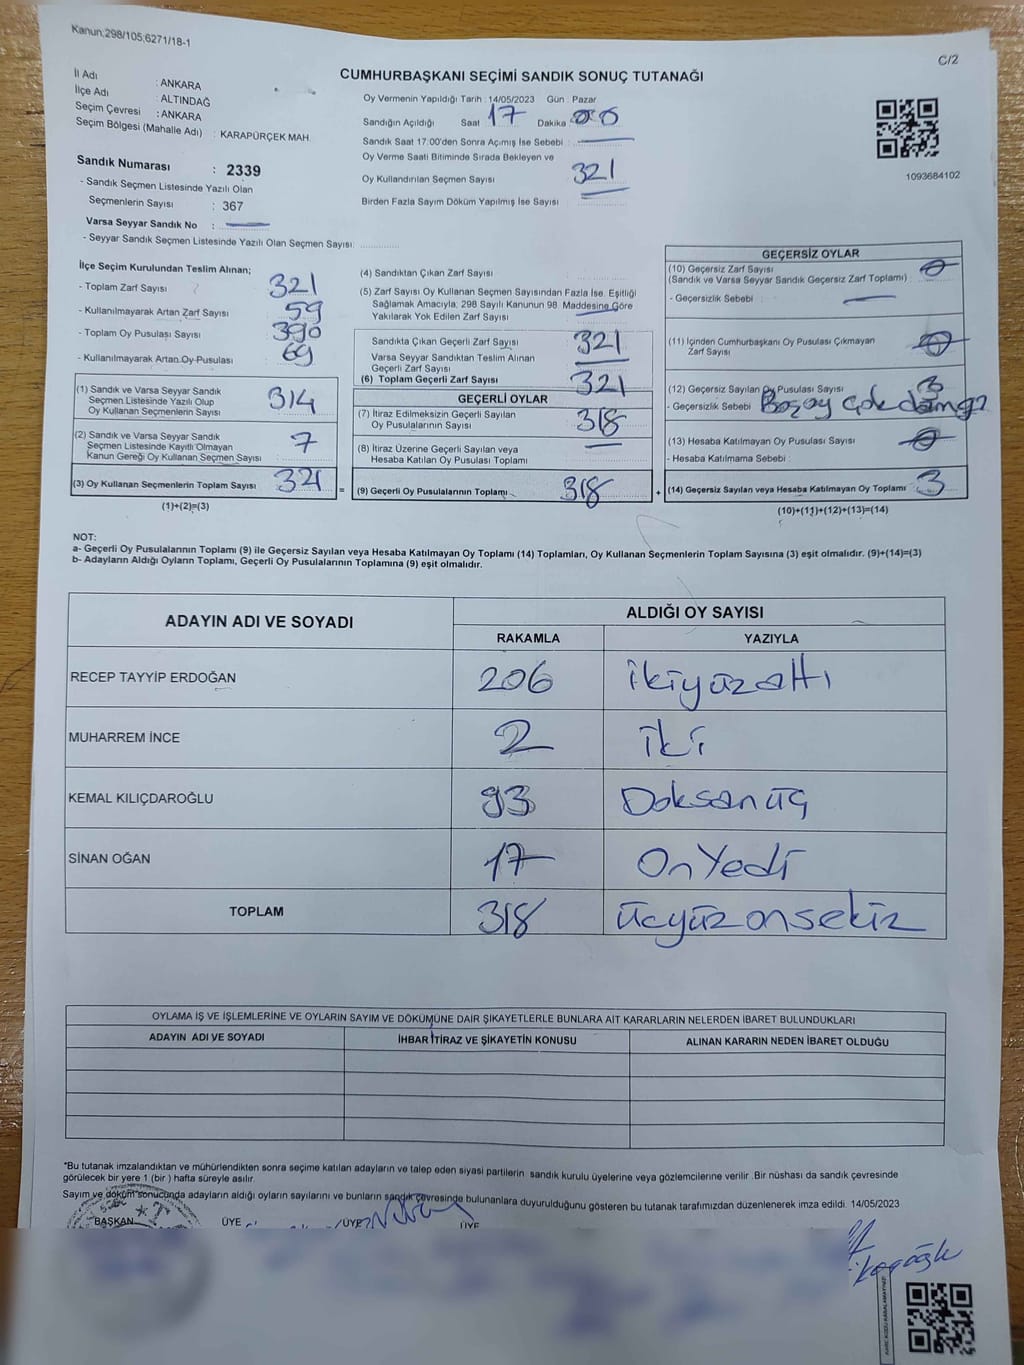 Kanun;298/105;6271/18-1
C/2
CUMHURBAŞKANI SEÇİMİ SANDIK SONUÇ TUTANAĞI
İl Adı : ANKARA
İlçe Adı : ALTINDAĞ
Seçim Çevresi : ANKARA
Seçim Bölgesi (Mahalle Adı) : KARAPÜRÇEK MAH.
Sandık Numarası : 2339
- Sandık Seçmen Listesinde Yazılı Olan
Seçmenlerin Sayısı : 367
Varsa Seyyar Sandık No :
- Seyyar Sandık Seçmen Listesinde Yazılı Olan Seçmen Sayısı:
Oy Vermenin Yapıldığı Tarih : 14/05/2023 Gün : Pazar
Sandığın Açıldığı Saat 17 Dakika 00
Sandık Saat 17:00'den Sonra Açımış İse Sebebi :
Oy Verme Saati Bitiminde Sırada Bekleyen ve
Oy Kullandırılan Seçmen Sayısı 321
Birden Fazla Sayım Döküm Yapılmış İse Sayısı
1093684102
İlçe Seçim Kurulundan Teslim Alınan;
- Toplam Zarf Sayısı 321
- Kullanılmayarak Artan Zarf Sayısı 59
- Toplam Oy Pusulası Sayısı 390
- Kullanılmayarak Artan Oy Pusulası 69
(1) Sandık ve Varsa Seyyar Sandık
Seçmen Listesinde Yazılı Olup
Oy Kullanan Seçmenlerin Sayısı 314
(2) Sandık ve Varsa Seyyar Sandık
Seçmen Listesinde Kayıtlı Olmayan
Kanun Gereği Oy Kullanan Seçmen Sayısı 7
(3) Oy Kullanan Seçmenlerin Toplam Sayısı 321 =
(1)+(2)=(3)
(4) Sandıktan Çıkan Zarf Sayısı
(5) Zarf Sayısı Oy Kullanan Seçmen Sayısından Fazla İse, Eşitliği
Sağlamak Amacıyla; 298 Sayılı Kanunun 98. Maddesine Göre
Yakılarak Yok Edilen Zarf Sayısı
Sandıkta Çıkan Geçerli Zarf Sayısı 321
Varsa Seyyar Sandıktan Teslim Alınan
Geçerli Zarf Sayısı
(6) Toplam Geçerli Zarf Sayısı 321
GEÇERLİ OYLAR
(7) İtiraz Edilmeksizin Geçerli Sayılan
Oy Pusulalarının Sayısı 318
(8) İtiraz Üzerine Geçerli Sayılan veya
Hesaba Katılan Oy Pusulası Toplamı
(9) Geçerli Oy Pusulalarının Toplamı 318 +
GEÇERSİZ OYLAR
(10) Geçersiz Zarf Sayısı 0
(Sandık ve Varsa Seyyar Sandık Geçersiz Zarf Toplamı)
- Geçersizlik Sebebi :
(11) İçinden Cumhurbaşkanı Oy Pusulası Çıkmayan
Zarf Sayısı 0
(12) Geçersiz Sayılan Oy Pusulası Sayısı 3
- Geçersizlik Sebebi Boşoy çok damga
(13) Hesaba Katılmayan Oy Pusulası Sayısı 0
- Hesaba Katılmama Sebebi :
(14) Geçersiz Sayılan veya Hesaba Katılmayan Oy Toplamı 3
(10)+(11)+(12)+(13)=(14)
NOT:
a- Geçerli Oy Pusulalarının Toplamı (9) ile Geçersiz Sayılan veya Hesaba Katılmayan Oy Toplamı (14) Toplamları, Oy Kullanan Seçmenlerin Toplam Sayısına (3) eşit olmalıdır. (9)+(14)=(3)
b- Adayların Aldığı Oyların Toplamı, Geçerli Oy Pusulalarının Toplamına (9) eşit olmalıdır.
ADAYIN ADI VE SOYADI ALDIĞI OY SAYISI
RAKAMLA YAZIYLA
RECEP TAYYİP ERDOĞAN 206 ikiyüzaltı
MUHARREM İNCE 2 iki
KEMAL KILIÇDAROĞLU 93 Doksanüç
SİNAN OĞAN 17 OnYedi
TOPLAM 318 üçyüzonsekiz
OYLAMA İŞ VE İŞLEMLERİNE VE OYLARIN SAYIM VE DÖKÜMÜNE DAİR ŞİKAYETLERLE BUNLARA AİT KARARLARIN NELERDEN İBARET BULUNDUKLARI
ADAYIN ADI VE SOYADI İHBAR İTİRAZ VE ŞİKAYETİN KONUSU ALINAN KARARIN NEDEN İBARET OLDUĞU
*Bu tutanak imzalandıktan ve mühürlendikten sonra seçime katılan adayların ve talep eden siyasi partilerin sandık kurulu üyelerine veya gözlemcilerine verilir. Bir nüshası da sandık çevresinde
görülecek bir yere 1 (bir ) hafta süreyle asılır.
Sayım ve döküm sonucunda adayların aldığı oyların sayılarını ve bunların sandık çevresinde bulunanlara duyurulduğunu gösteren bu tutanak tarafımızdan düzenlenerek imza edildi. 14/05/2023
BAŞKAN ÜYE ÜYE ÜYE